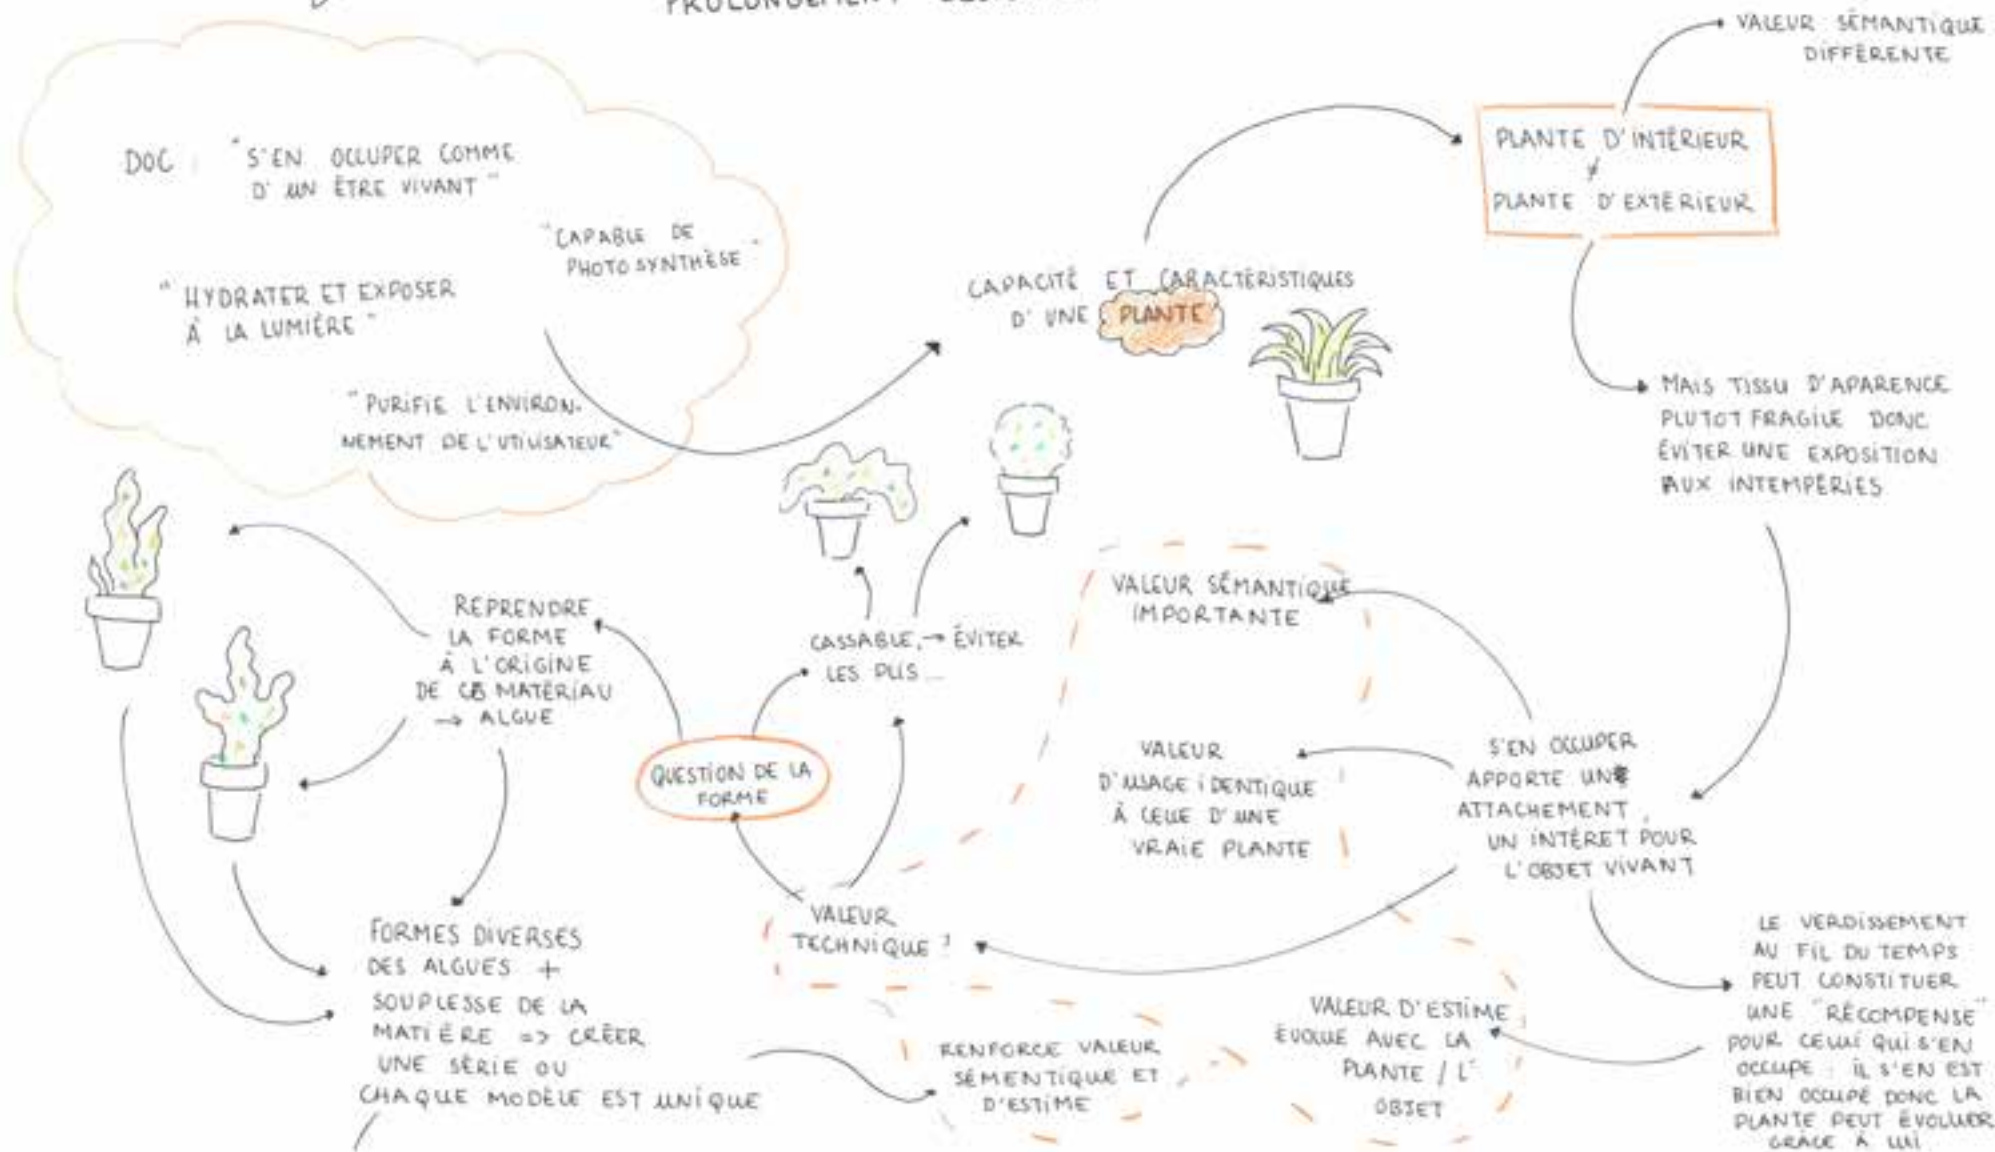 PROLONGEMENT
VALEUR SÉMANTIQUE
DIFFÉRENTE
DOC : "S'EN OCCUPER COMME
D'UN ÊTRE VIVANT"
"CAPABLE DE
PHOTOSYNTHÈSE"
"HYDRATER ET EXPOSER
À LA LUMIÈRE"
"PURIFIE L'ENVIRON-
NEMENT DE L'UTILISATEUR"
CAPACITÉ ET CARACTÉRISTIQUES
D'UNE PLANTE
PLANTE D'INTÉRIEUR
≠
PLANTE D'EXTÉRIEUR
MAIS TISSU D'APARENCE
PLUTOT FRAGILE DONC
ÉVITER UNE EXPOSITION
AUX INTEMPÉRIES
REPRENDRE
LA FORME
À L'ORIGINE
DE CE MATÉRIAU
→ ALGUE
CASSABLE, → ÉVITER
LES PLIS...
QUESTION DE LA
FORME
VALEUR SÉMANTIQUE
IMPORTANTE
VALEUR
D'USAGE IDENTIQUE
À CELLE D'UNE
VRAIE PLANTE
S'EN OCCUPER
APPORTE UN
ATTACHEMENT,
UN INTÉRET POUR
L'OBJET VIVANT
VALEUR
TECHNIQUE ?
FORMES DIVERSES
DES ALGUES +
SOUPLESSE DE LA
MATIÈRE => CRÉER
UNE SÉRIE OU
CHAQUE MODÈLE EST UNIQUE
RENFORCE VALEUR
SÉMENTIQUE ET
D'ESTIME
VALEUR D'ESTIME
ÉVOLUE AVEC LA
PLANTE / L'
OBJET
LE VERDISSEMENT
AU FIL DU TEMPS
PEUT CONSTITUER
UNE "RÉCOMPENSE"
POUR CELUI QUI S'EN
OCCUPE : IL S'EN EST
BIEN OCCUPÉ DONC LA
PLANTE PEUT ÉVOLUER
GRÂCE À LUI